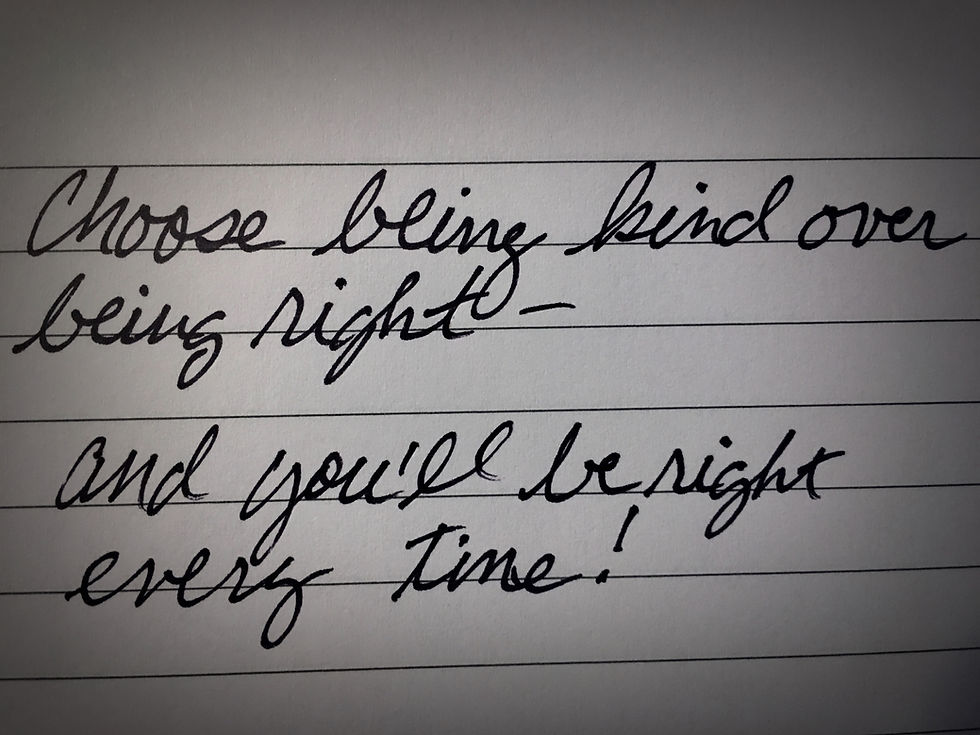 Choose being kind over
being right –
and you'll be right
every time!